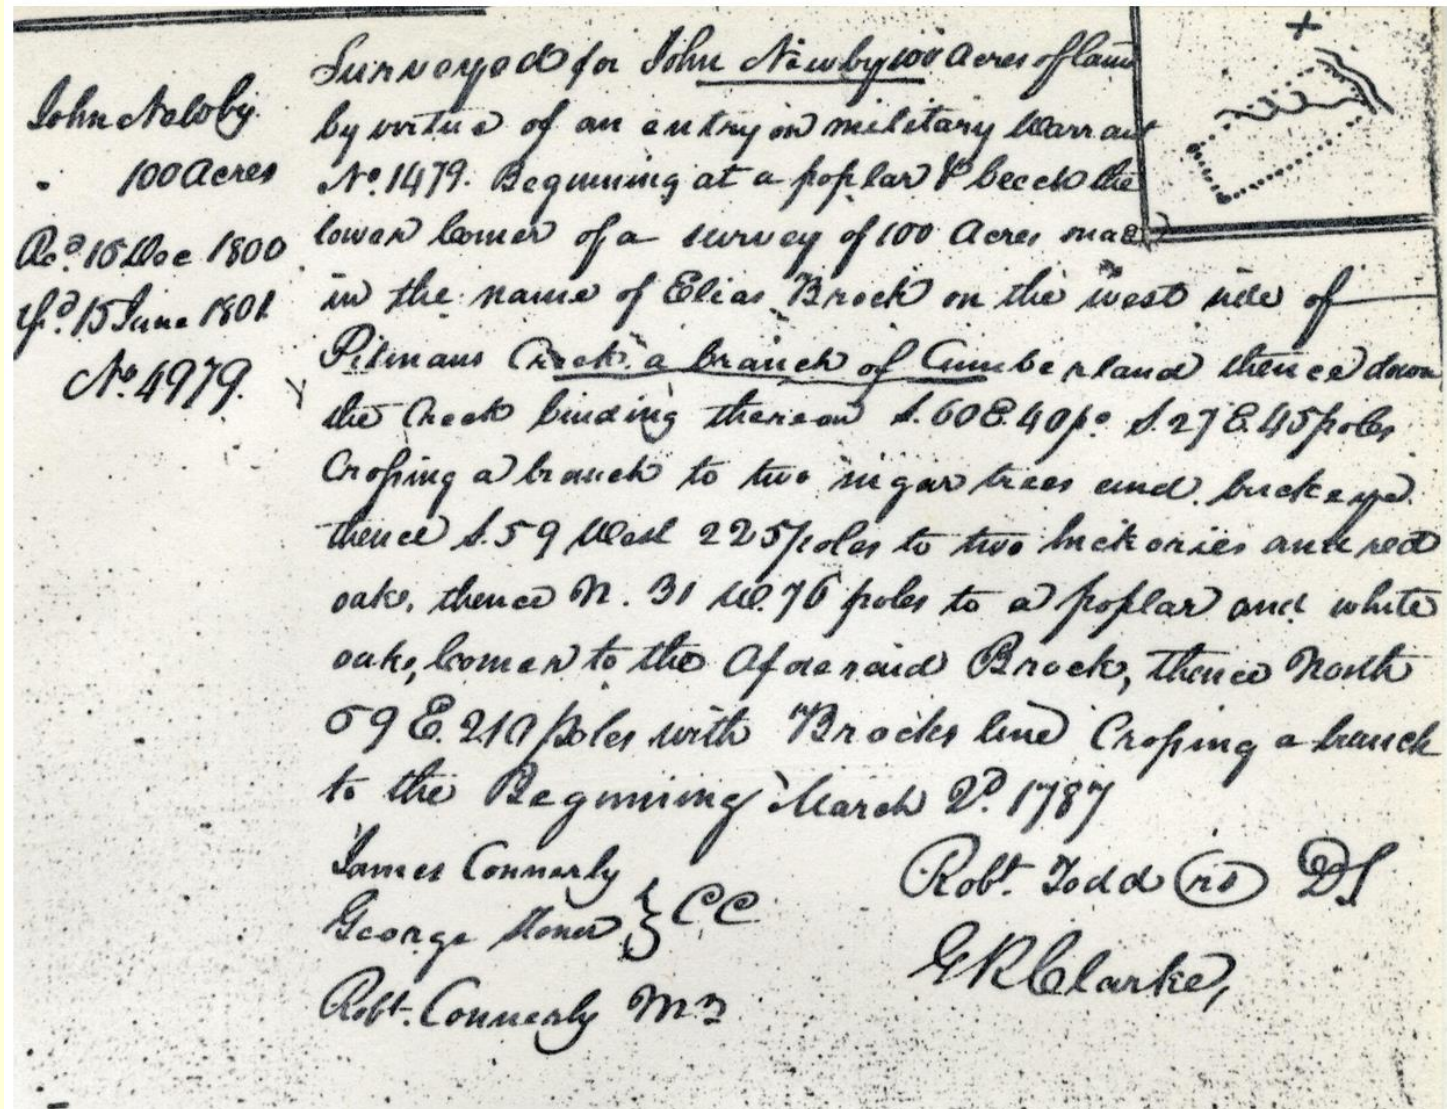 John Newby
100 Acres
Recd. 16 Dec 1800
15 June 1801
No. 4979.
Surveyed for John Newby 100 Acres of land
by virtue of an entry on military Warrant
No. 1479. Beginning at a poplar & beech the
lower Corner of a survey of 100 Acres made
in the name of Elias Brock on the west side of
Pitmans Creek a branch of Cumberland thence down
the Creek binding thereon S. 60 E. 40 po. S. 27 E. 45 poles
Crossing a branch to two sugar trees and buckeye
thence S. 59 West 225 poles to two hickories and red
oak, thence N. 31 W. 76 poles to a poplar and white
oak, Corner to the Aforesaid Brock, thence North
59 E. 210 poles with Brocks line Crossing a branch
to the Beginning March 2d. 1787
James Connerly
George } CC
Robt. Connerly Mr
Robt. Todd DS
GRClarke,